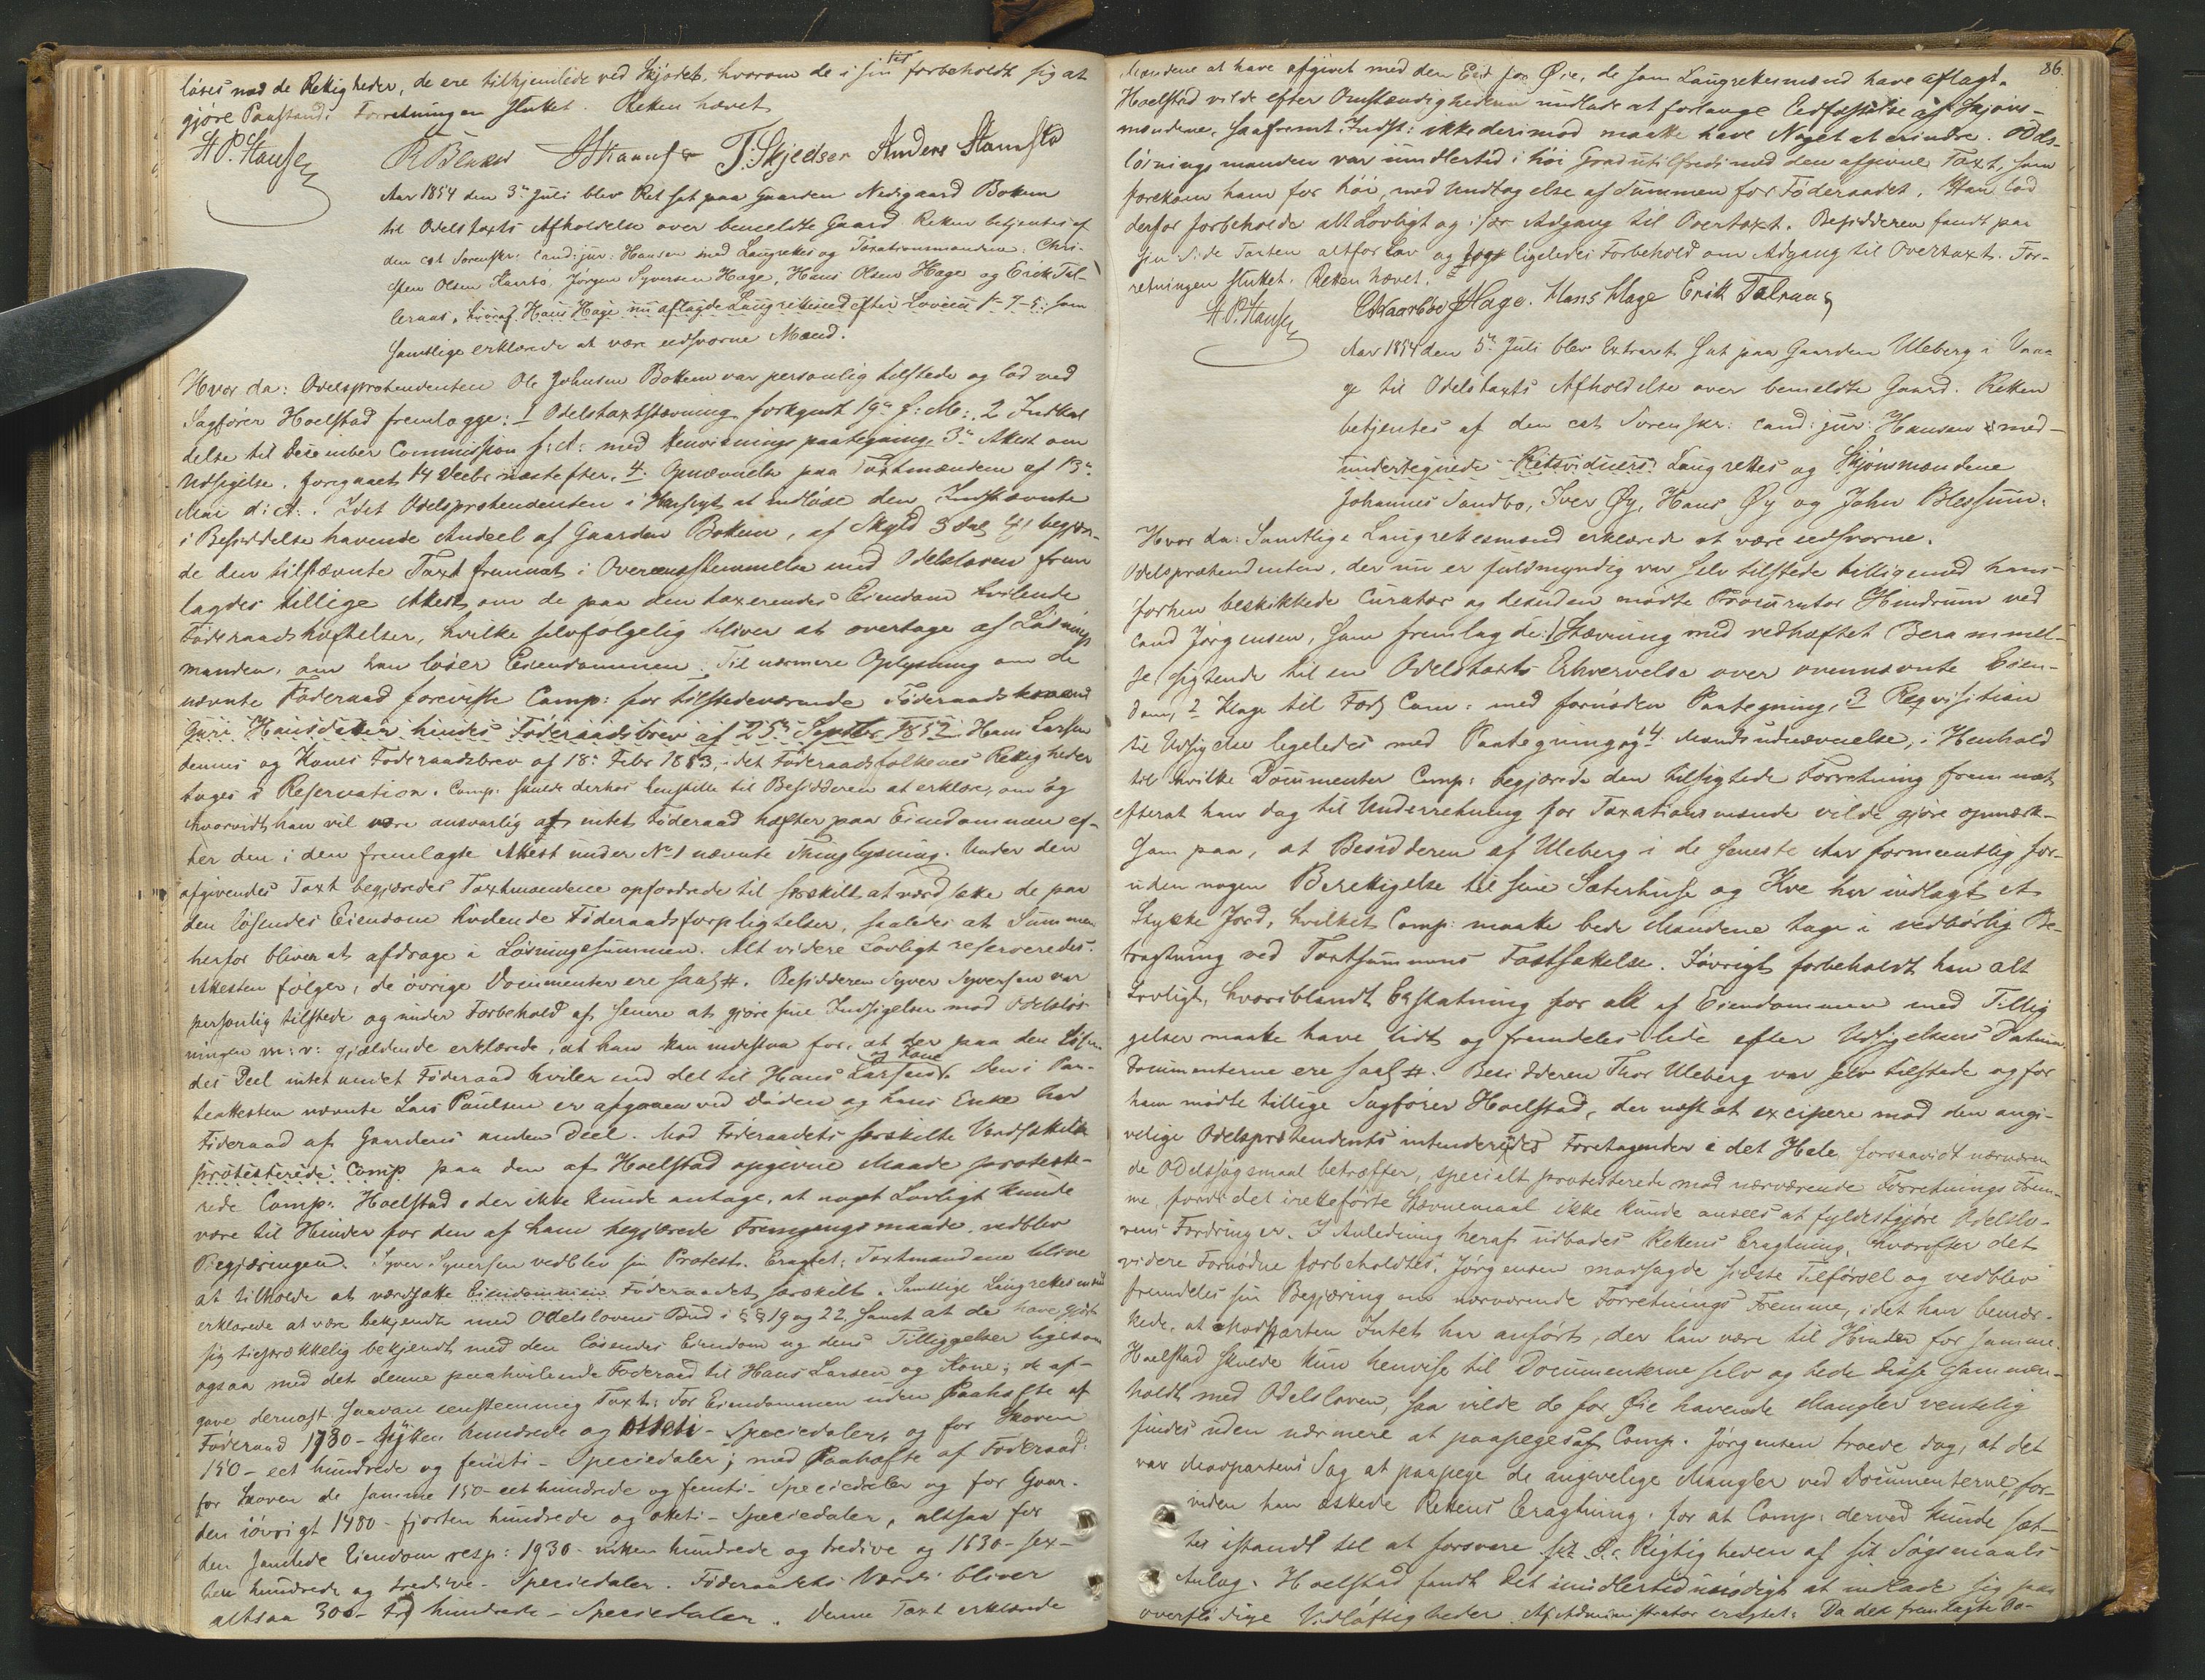 løses med de Rettigheder, de ere tilhjemlede ved Skjødet, hvorom de i sin tid forbeholdt sig at
gjøre Paastand. Forretningen sluttet. Retten hævet
H P. Hansen T. Skjedsen Anders Stamstad
Aar 1854 den 3die Juli blev Ret sat paa Gaarden Nedigaard Bottem
til Odelstaxts Afholdelse over bemeldte Gaard. Retten betjentes af
den cst Sorenskr: cand: jur: Hansen med Laugrettes og Taxationsmændene: Chri-
sten Olsen Kaarbø, Jørgen Syversen Hage, Hans Olsen Hage og Erik Tal-
leraas, hvoraf Hans Hage nu aflagde Laugrettesed efter Lovens 1-7-5: som
samtlige erklærede at være edsvorne Mænd.
Hvor da: Odelsprætendenten Ole Johnsen Bottem var personlig tilstede og lod ved
Sagfører Hoelstad fremlægge: 1 Odelstaxtstævning forkyndt 19de f: M: 2 Indkal
delse til December Commission f: A: med Henvisningspaategning, 3die Attest om
Udsigelse, foregaaet 14 Decbr næstefter, 4. Opnævnelse paa Taxtmændene af 13de
Mai d: A: Idet Odelsprætendenten i Henseende at indløse den Indstævnte
i Besiddelse havende Andeel af Gaarden Bottem, af Skyld 3 Dal begjær-
de den tilstævnte Taxt fremmet i Overeensstemmelse med Odelsloven frem
lagdes tillige Attest om de paa den taxerendes Eiendom hvilende
Føderaadsheftelser, hvilke selvfølgelig bliver at overtage af Løsnings
manden, om han løser Eiendommen. Til nærmere Oplysning om de
nævnte Føderaad foreviste Comp: for tilstedeværende Føderaadskone
Guri Hansdatter hendes Føderaadsbrev af 25de Septbr 1852 Hans Larsen
dennes og Kones Føderaadsbrev af 18de Febr 1853, idet Føderaadsfolkenes Rettigheder
tages i Reservation. Comp: skulde derhos henstille til Besidderen at erklære, om og
hvorvidt han vil være ansvarlig at intet Føderaad hæfter paa Eiendommen ef-
ter den i den fremlagte Attest under No 1 nævnte Thinglysning. Under den
afgivendes Taxt begjæredes Taxtmændene opfordrede til særskilt at værdsætte de paa
den løsendes Eiendom hvilende Føderaadsforpligtelser, saaledes at Summen
herfor bliver at afdrage i Løsningssummen. Alt videre Lovligt reserveredes.
Attesten følger, de øvrige Documenter ere saal #. Besidderen Syver Syversen var
personlig tilstede og under Forbehold af senere at gjøre sine Indsigelser mod Odelsløs-
ningen m: v: gjældende erklærede, at han kan indestaa for, at der paa den Løsen-
des Deel intet andet Føderaad hviler end det til Hans Larsen og Kone. Den i Pan-
teattesten nævnte Lars Paulsen er afgaaen ved Døden og hans Enke har
Føderaad af Gaardens anden Deel. Mod Føderaadets særskilte Værdsættelse
protesterede Comp paa den af Hoelstad opgivne Maade proteste-
rede Comp: Hoelstad, der ikke kunde antage, at noget Lovligt kunde
være til Hinder for den af ham begjærede Fremgangsmaade, vedblev
Begjæringen. Syver Syversen vedblev sin Protest. Eragtet: Taxtmændene blive
at tilholde at værdsætte Eiendommen Føderaadet særskilt. Samtlige Laugrettesmænd
erklærede at være bekjendt med Odelslovens Bud i §§ 19 og 22, samt at de have gjort
sig tilstrækkelig bekjendt med den Løsendes Eiendom og dens Tilliggelser ligesom
ogsaa med det denne paahvilende Føderaad til Hans Larsen og Kone; de af-
gave dernæst saadan eenstemmig Taxt: For Eiendommen uden Paahefte af
Føderaad 1780 - sytten hundrede og otteti - Speciedaler, og for Skoven
150 - eet hundrede og femti - Speciedaler; med Paahefte af Føderaad:
for Skoven de samme 150 - eet hundrede og femti - Speciedaler og for Gaar-
den iøvrigt 1480 - fjorten hundrede og otteti - Speciedaler, altsaa for
den samlede Eiendom resp: 1930 - nitten hundrede og tredive og 1630 - sex-
ten hundrede og tredive - Speciedaler. Føderaadets Værdi bliver
altsaa 300 - tre hundrede - Speciedaler. Denne Taxt erklærede
86.
Mændene at have afgivet med den Eed for Øie, de som Laugrettesmænd have aflagt.
Hoelstad vilde efter Omstændighederne undlade at forlange Eedfæstelse af Skjøns-
mændene, saafremt Indst: ikke derimod maatte have Noget at erindre. Odels-
løsningsmanden var imidlertid i høi Grad utilfreds med den afgivne Taxt, som
forekom ham for høi, med Undtagelse af Summen for Føderaadet. Han lod
derfor forbeholde alt Lovligt og især Adgang til Overtaxt. Besidderen fandt paa
sin Side Taxten altfor lav og tog ligeledes Forbehold om Adgang til Overtaxt. For-
retningen sluttet. Retten hævet.
H P. Hansen CKaarbø JHage. Hans Hage Erik Talraas
Aar 1854 den 5te Juli blev Extraret sat paa Gaarden Uleberg i Vaa
ge til Odelstaxts Afholdelse over bemeldte Gaard. Retten
betjentes af den cst Sorenskr: cand: jur: Hansen med
undertegnede Retsvidners Laugrettes og Skjønsmændene
Johannes Sandbo, Iver Øy, Hans Øy og John Blessum.
Hvor da: Samtlige Laugrettesmænd erklærede at være eedsvorne.
Odelsprætendenten, der nu er fuldmyndig var selv tilstede tilligemed hans
forhen beskikkede Curator og desuden mødte Procurator Hindrum ved
Cand Jørgensen, som fremlagde: 1 Stævning med vedhæftet Berammel-
se sigtende til en Odelstaxts Erhvervelse over ovennævnte Eien-
dom, 2 Klage til Forl Com: med fornøden Paategning, 3 Reqvisition
til Udsigelse ligeledes med Paategning og 4 Mandsudnævnelse, i Henhold
til hvilke Documenter Comp: begjærede den tilsigtede Forretning fremmet
efterat han dog til Underretning for Taxationsmænde vilde gjøre opmærk-
som paa, at Besidderen af Uleberg i de seneste Aar formeentlig for-
uden nogen Berettigelse til sine Sæterhuse og Kve har indlagt et
Stykke Jord, hvilket Comp: maatte bede Mændene tage i vedbørlig Be-
tragtning ved Taxtsummens Fastsættelse. Iøvrigt forbeholdt han alt
Lovligt, hvoriblandt Erstatning for alt af Eiendommen med Tillig
gelser maatte have lidt og fremdeles lide efter Udsigelsens Datum.
Documenterne ere saal #. Besidderen Thor Uleberg var selv tilstede og for
ham mødte tillige Sagfører Hoelstad, der næst at excipere mod den angi-
velige Odelsprætendents intenderede Foretagender i det Hele forsaavidt nærværen
de Odelssøgsmaal betræffer, specielt protesterede mod nærværende Forretnings Frem-
me, fordi det iretteførte Stævnemaal ikke kunde ansees at fyldestgjøre Odelslo-
vens Fordringer. I Anledning heraf udbades Rettens Eragtning, hvorefter det
videre Fornødne forbeholdtes. Jørgensen modsagde sidste Tilførsel og vedblev
fremdeles sin Begjæring om nærværende Forretnings Fremme, idet han bemær-
kede, at Modparten Intet har anført, der kan være til Hinder for samme.
Hoelstad skulde kun henvise til Documenterne selv og bede disse sammen-
holdt med Odelsloven, saa vilde de for Øie havende Mangler ventelig
findes uden nærmere at paapeges af Comp. Jørgensen troede dog, at det
var Modpartens Sag at paapege de angivelige Mangler ved Documenterne, for-
inden han æskede Rettens Eragtning, for at Comp: derved kunde sæt-
tes istand til at forsvare Rigtigheden af sit Søgsmaals
Anlæg. Hoelstad fandt det imidlertid unødigt at indlade sig paa
overflødige Vidløftigheder. Administrator eragtet: Da det fremlagte Do-